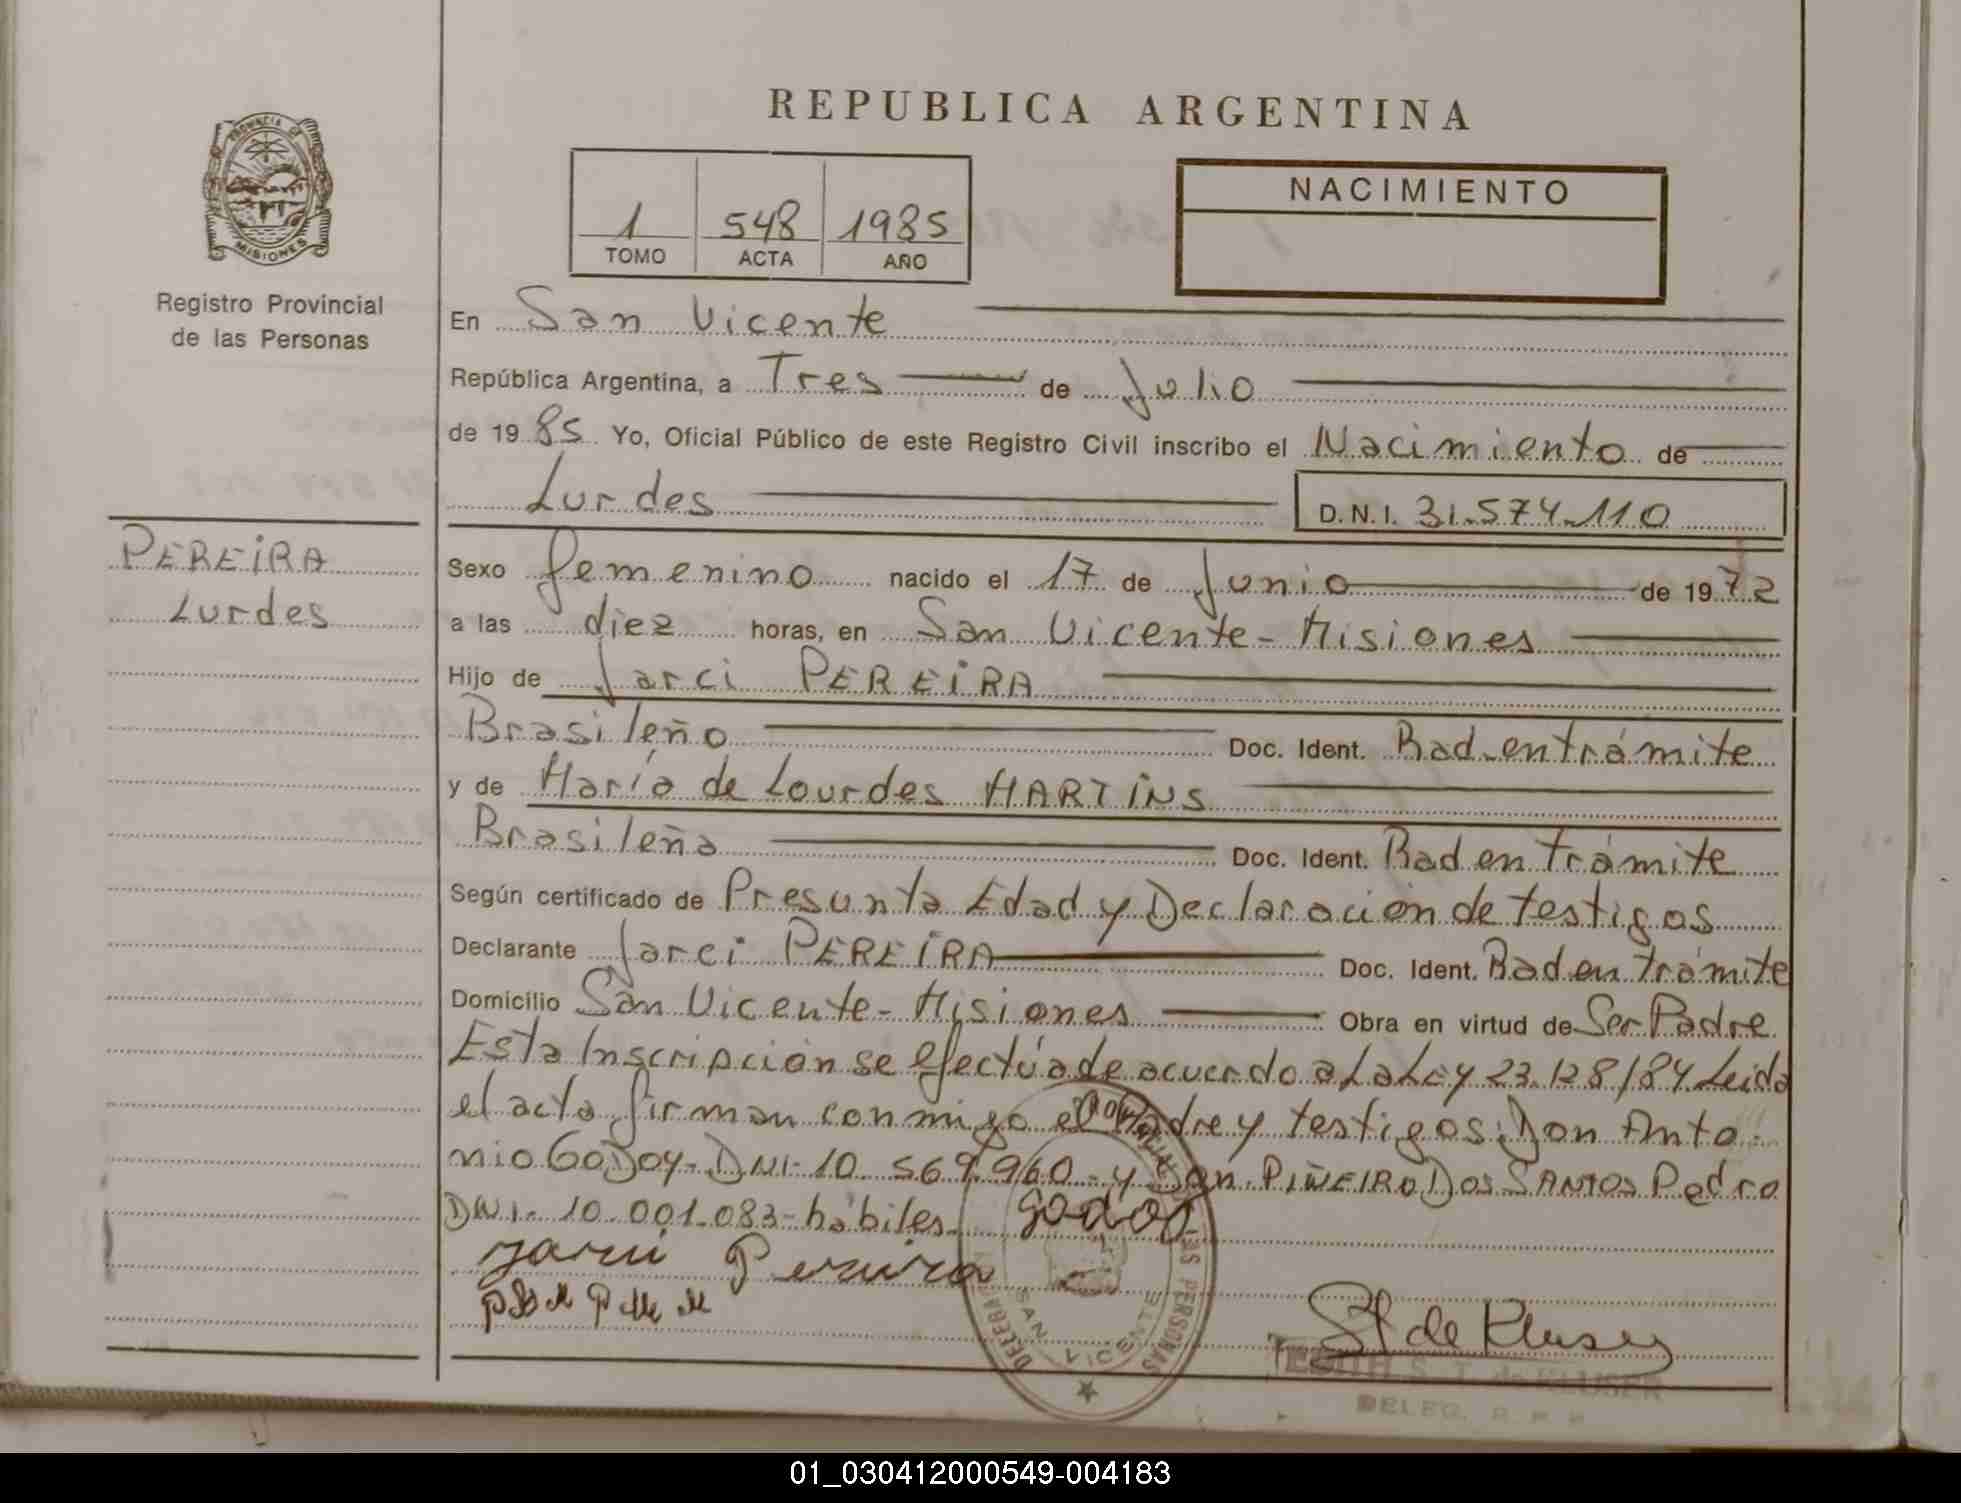 REPUBLICA ARGENTINA
PROVINCIA DE
MISIONES
Registro Provincial
de las Personas
1 548 1985
TOMO ACTA AÑO
NACIMIENTO
En San Vicente
República Argentina, a Tres de Julio
de 1985 Yo, Oficial Público de este Registro Civil inscribo el Nacimiento de
Lurdes D.N.I. 31.574.110
PEREIRA
Lurdes
Sexo femenino nacido el 17 de Junio de 1972
a las diez horas, en San Vicente - Misiones
Hijo de Jarci PEREIRA
Brasileño Doc. Ident. Rad en trámite
y de María de Lourdes MARTINS
Brasileña Doc. Ident. Rad en trámite
Según certificado de Presunta Edad y Declaración de testigos
Declarante Jarci PEREIRA Doc. Ident. Rad en trámite
Domicilio San Vicente - Misiones Obra en virtud de Ser Padre
Esta Inscripción se efectúa de acuerdo a La Ley 23.128/84. Leida
el acta, firman conmigo el Padre y testigos: Don Anto-
nio GODOY - DNI - 10.569.960 - y Don PIÑEIRO DOS SANTOS Pedro
DNI - 10.001.083 - hábiles
Godoy
Jarci Pereira
S T de Kluser
DELEGACION
LAS PERSONAS
SAN VICENTE
EDITH S. T. de KLUSER
DELEG. R. P. P.
01_030412000549-004183